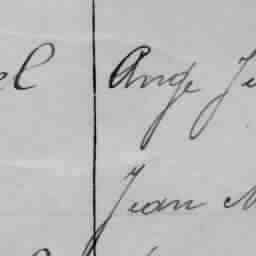 el Ange Je
Jean M